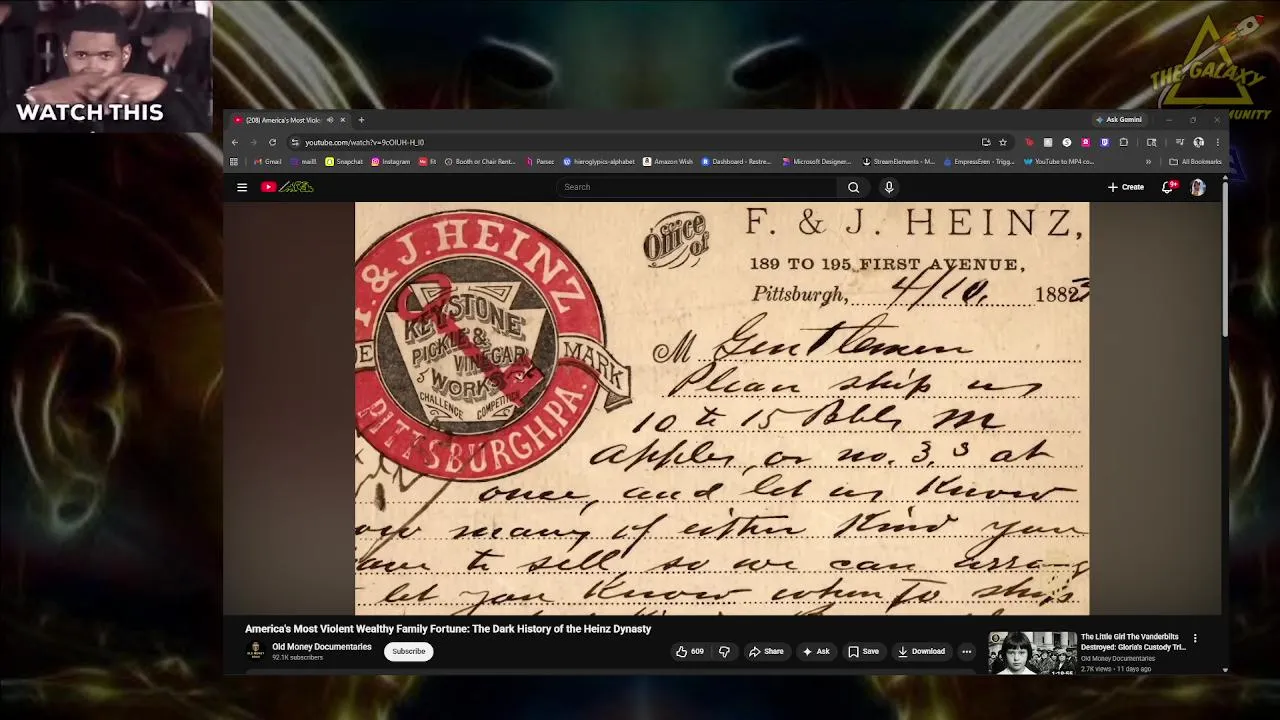 WATCH THIS
THE GALAXY
MUNITY
(208) America's Most Viole
Ask Gemini
youtube.com/watch?v=9cOlUH-H_I0
Gmail
Snapchat
Instagram
Booth or Chair Rent...
Parsec
hieroglypics-alphabet
Amazon Wish
Dashboard - Restre...
Microsoft Designer...
StreamElements - M...
EmpressEren - Trigg...
YouTube to MP4 co...
All Bookmarks
Search
Create
9+
F. & J. HEINZ
KEYSTONE
PICKLE &
VINEGAR
WORKS
CHALLENGE COMPETITION
DE MARK
PITTSBURGH, PA.
Office of
F. & J. HEINZ,
189 TO 195 FIRST AVENUE,
Pittsburgh, 4/10, 1883
M Gentlemen
Please ship us
10 to 15 Bbls
apples, or no. 3,3 at
once, and let us know
ow many of either kind you
ave to sell, so we can arrang
let you know when to ship
America's Most Violent Wealthy Family Fortune: The Dark History of the Heinz Dynasty
Old Money Documentaries
92.1K subscribers
Subscribe
609
Share
Ask
Save
Download
The Little Girl The Vanderbilts
Destroyed: Gloria's Custody Tri...
Old Money Documentaries
2.7K views • 11 days ago
1:18:55